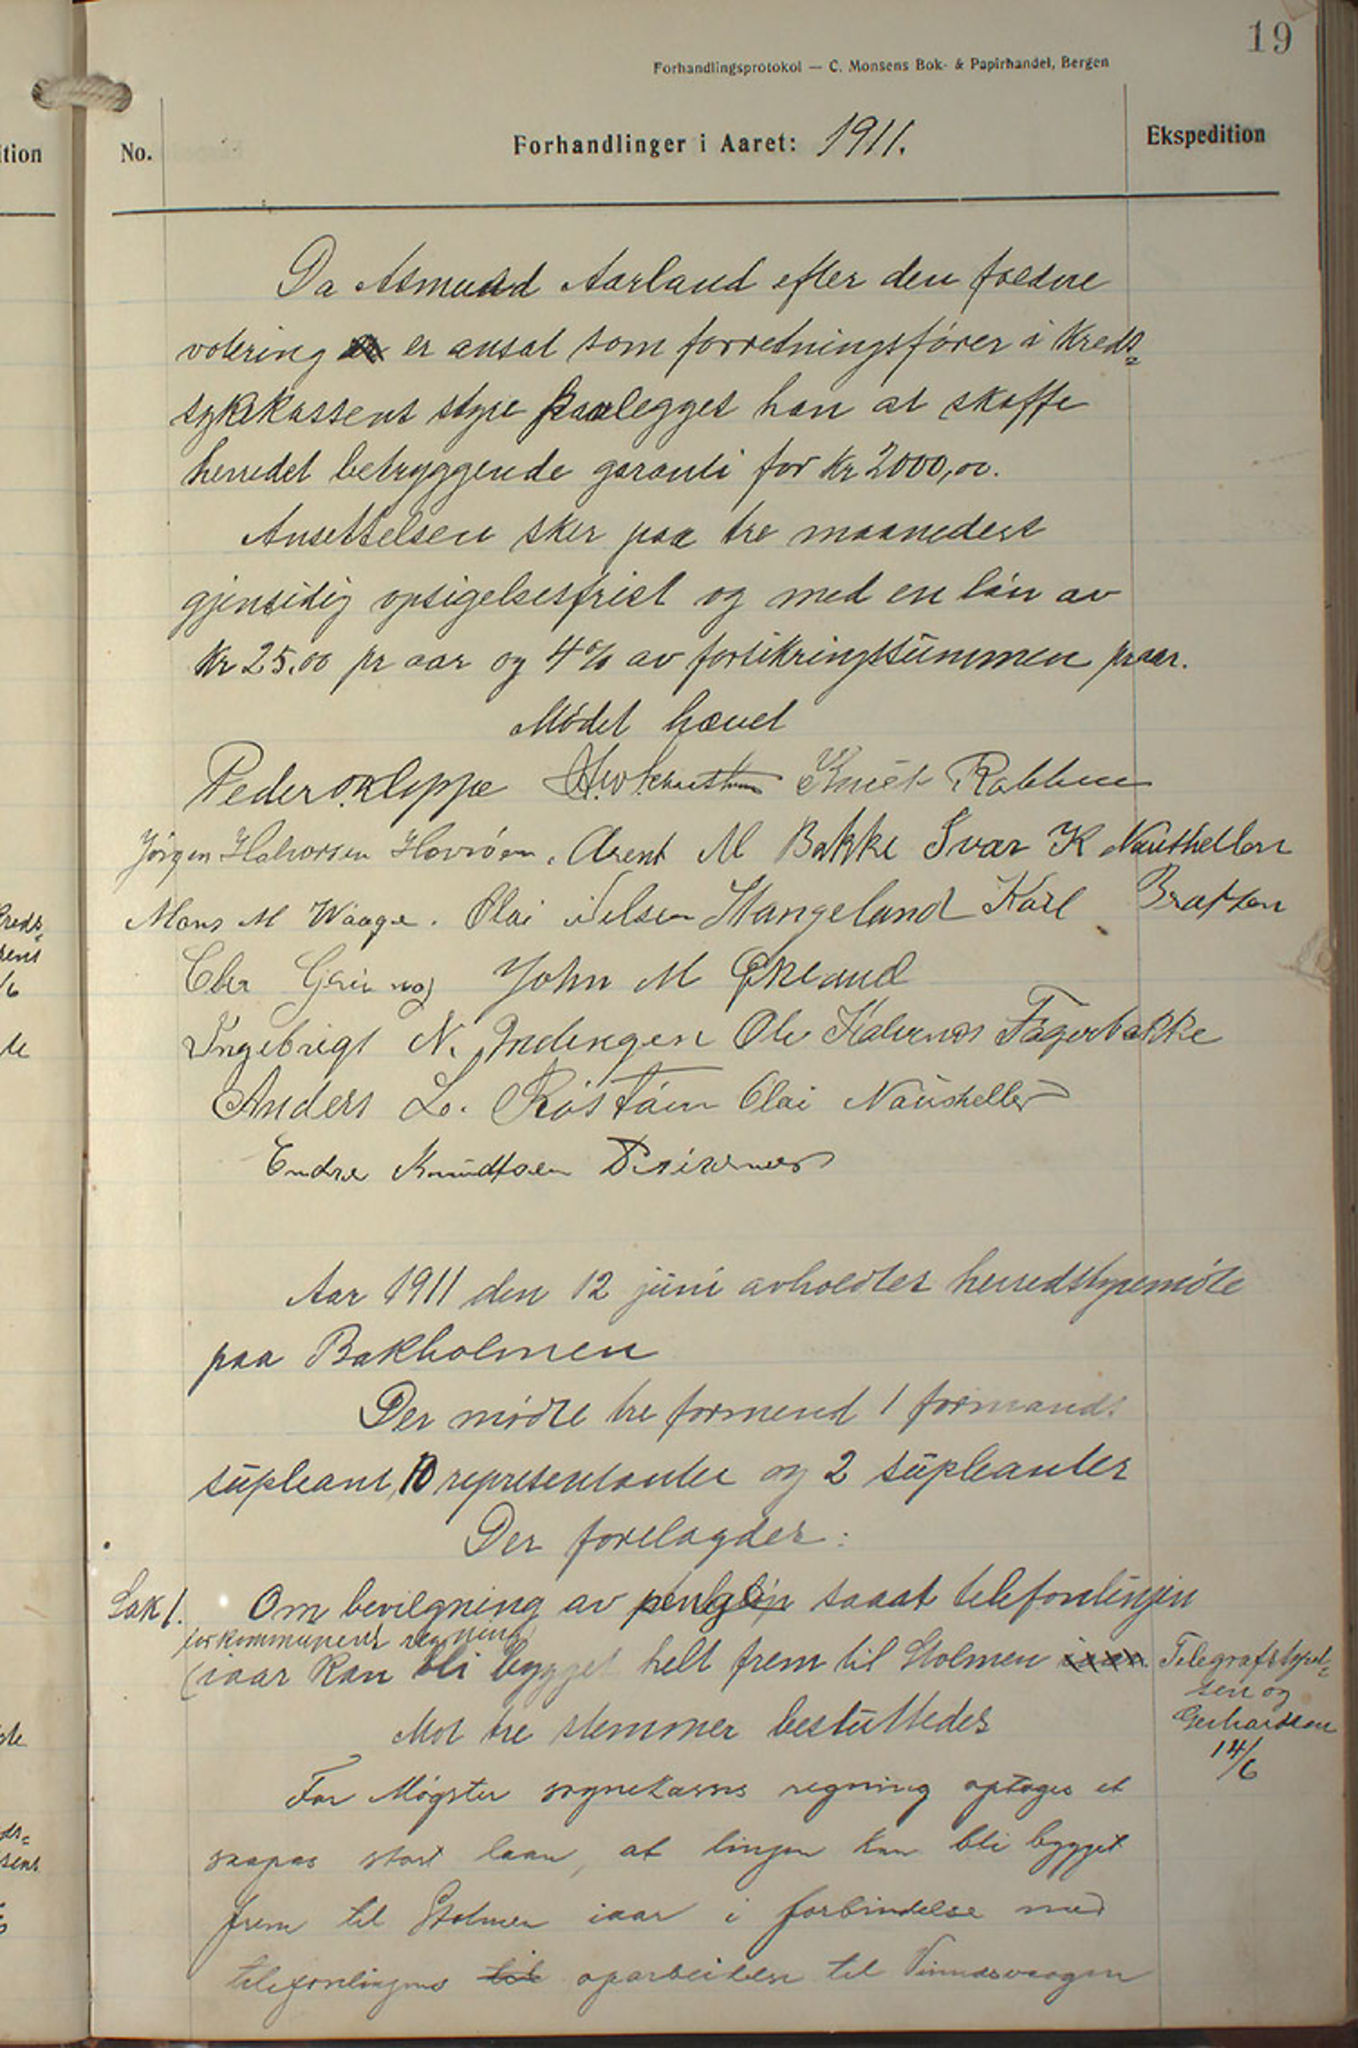 19
Forhandlingsprotokol — C. Monsens Bok- & Papirhandel, Bergen
No.
Forhandlinger i Aaret: 1911.
Ekspedition
Da Asmund Aarland efter den faldne
votering er ansat som forretningsfører i Kreds-
sykekassens styre paalegges han at skaffe
herredet betryggende garanti for Kr 2000,00.
Ansettelsen sker paa tre maaneders
gjensidig opsigelsesfrist og med en løn av
Kr 25.00 pr aar og 4% av forsikringssummen pr aar.
Mødet hævet
Peder O. Kleppe Knut Rabben
Jørgen Halvorsen Hovrøen. Arent M Bakke Ivar K Nausthellen
Mons M Waage. Olai Nilsen Stangeland Karl Bratten
John M Økland
Ingebrigt N. Indengen Ole Halvorsen Fagerbakke
Anders L. Røstøen Olai Naustheller
Endre Knudtsen
Aar 1911 den 12 juni avholdtes herredstyremøte
paa Bakholmen
Der mødte tre formend 1 formands
supleant, 10 representanter og 2 supleanter
Der forelagdes:
Sak 1. Om bevilgning av saaat telefonlinjen
for kommunens regning
(iaar kan bli bygget helt frem til Stolmen iaar
Telegrafstyrel-
sen og
Gerhardsen
14/6
Mot tre stemmer besluttedes
For Møgster sognekasses regning optages et
saapas stort laan, at linjen kan bli bygget
frem til Stolmen iaar i forbindelse med
telefonlinjens til oparbeidelse til Vinnesvaagen